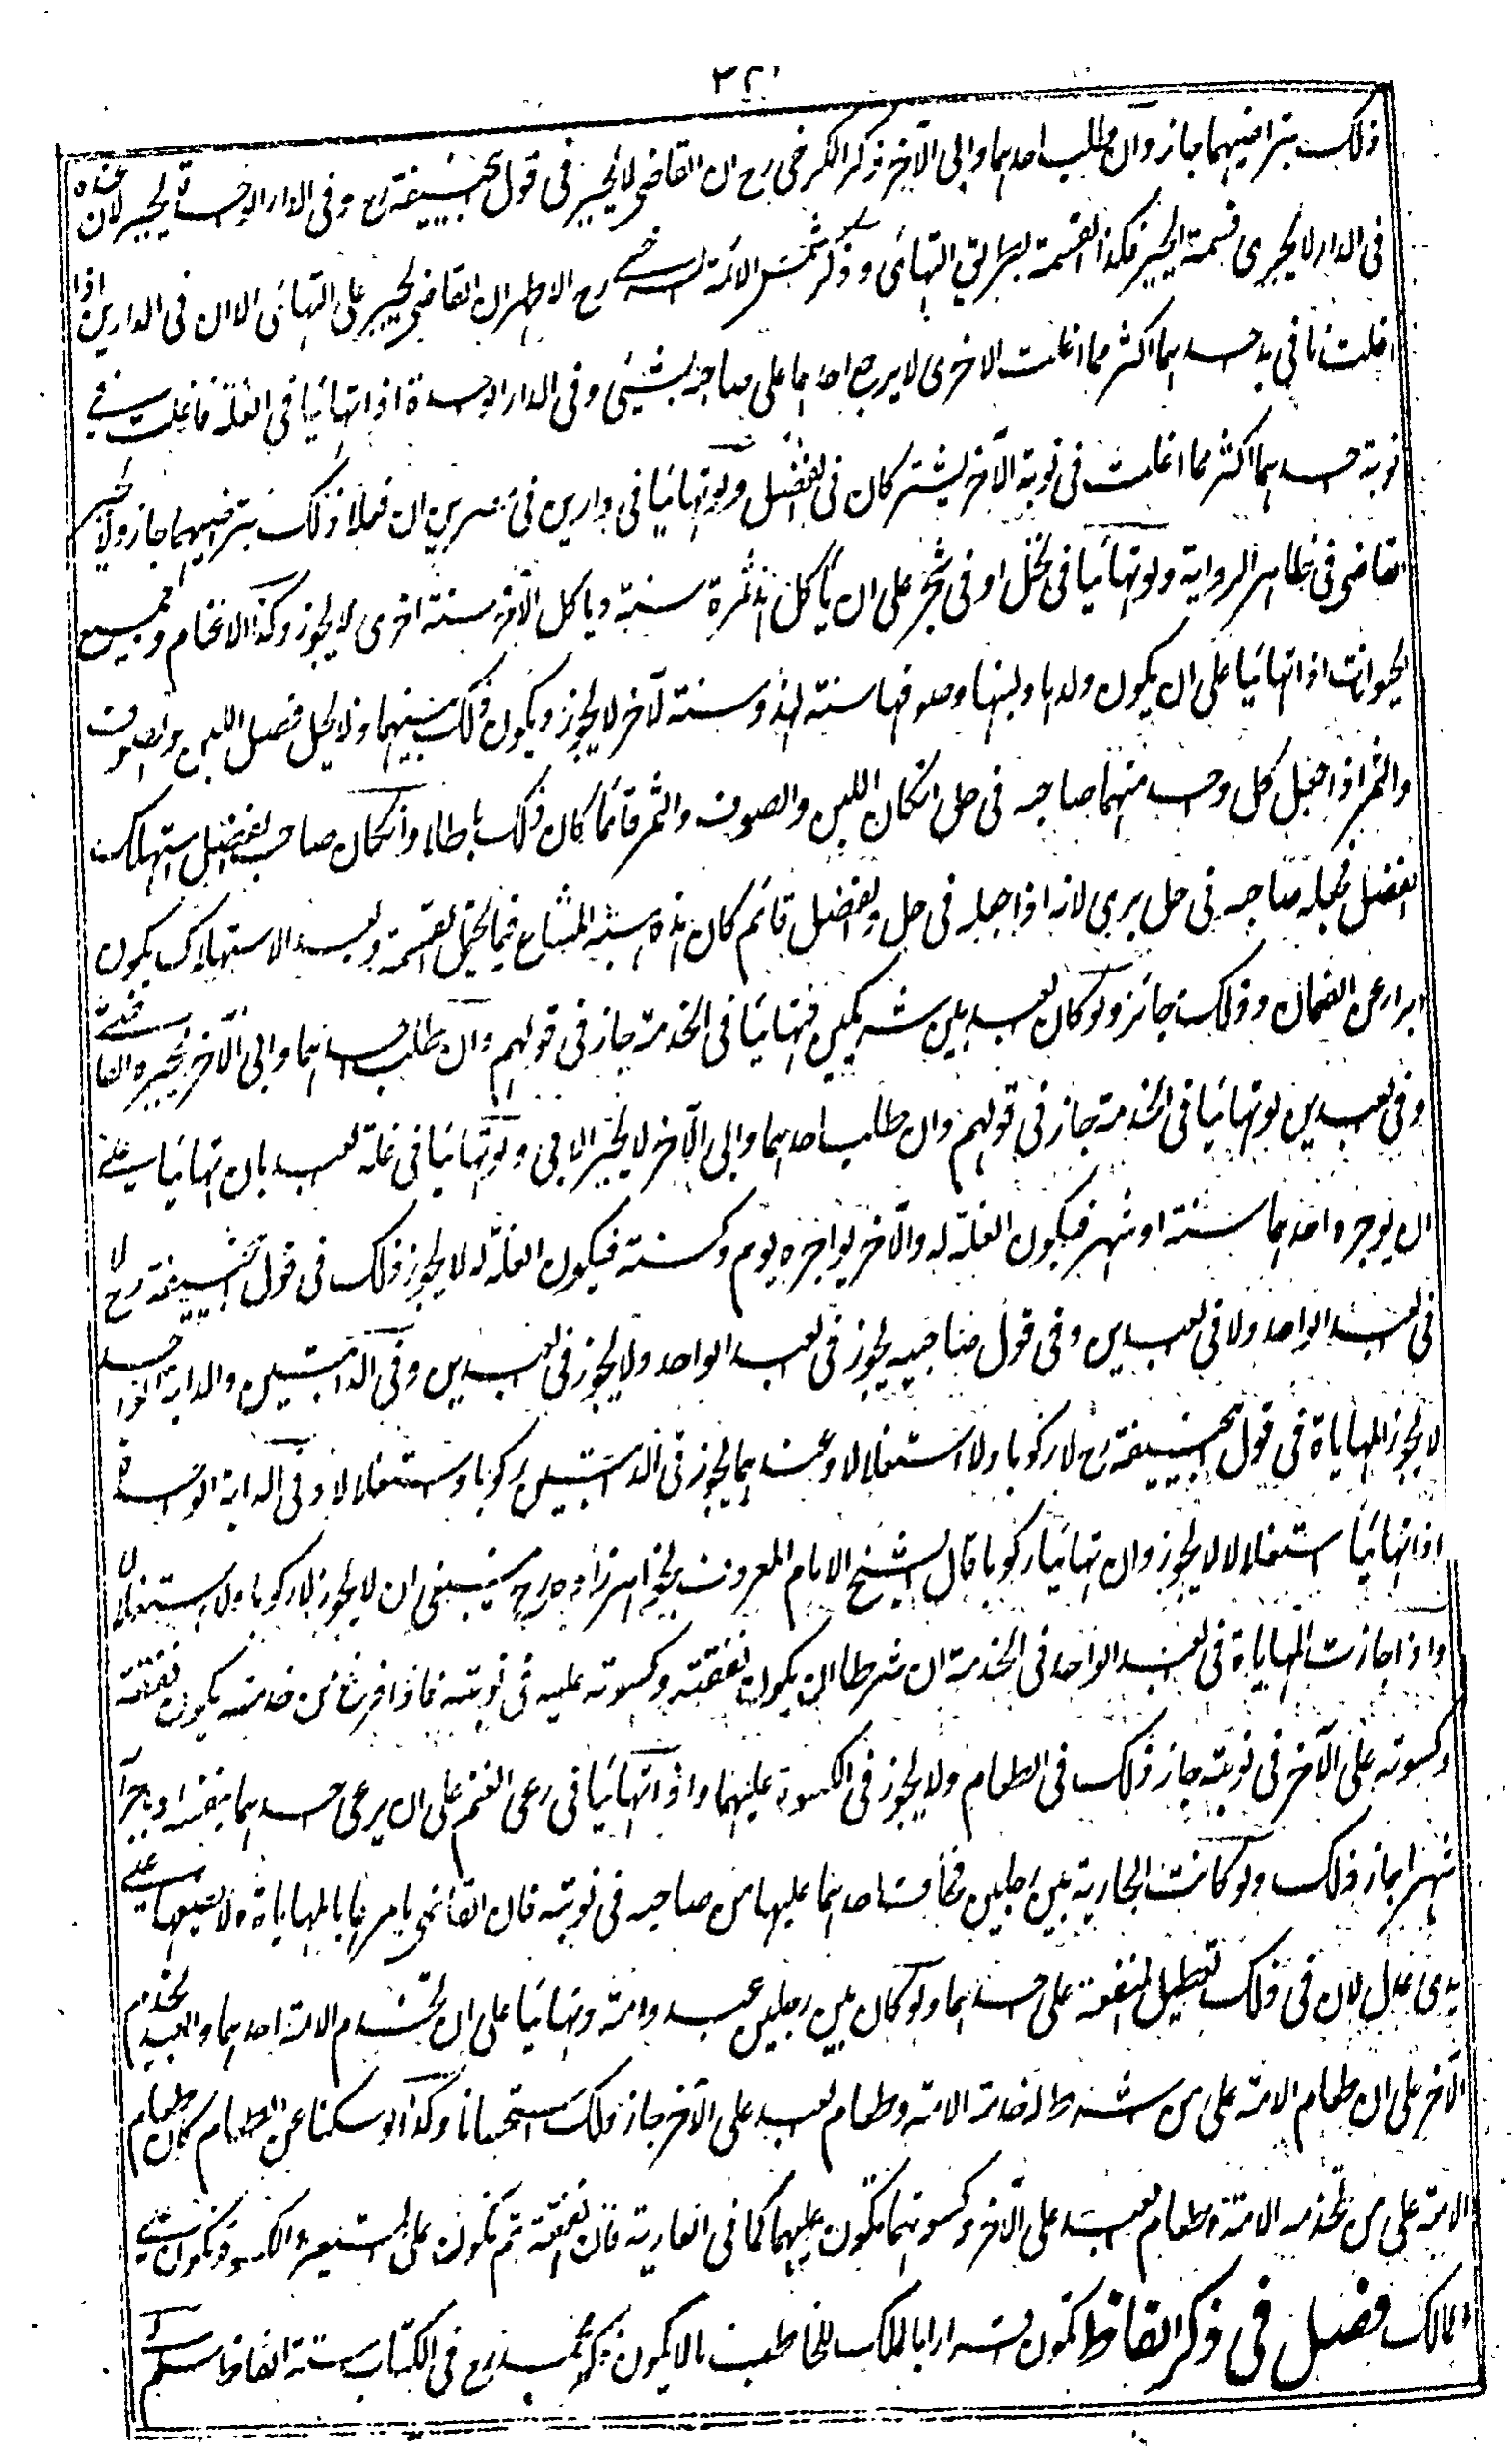 ٣٢٠
ذلك بتراضيهما جاز وان طلب احدهما وابى الآخر ذكر الكرخي رح ان القاضى لا يجبر فى قول ابيحنيفة رح وفى الدار الواحدة يجبر لان عنده
فى الدار لا يجرى قسمة الجبر فكذا القسمة بطريق التهائى وذكر شمس الائمة السرخسى رح الاظهر ان القاضى يجبر على التهائى الا ان فى الدارين اذا
اغلت ما فى يد احدهما اكثر مما اغلت الاخرى لا يرجع احدهما على صاحبه بشيئ وفى الدار الواحدة اذا تهائيا فى الغلة فاغلت فى
نوبة احدهما اكثر مما اغلت فى نوبة الآخر يشتركان فى الفضل ولو تهائيا فى دارين فى مصرين ان فعلا ذلك بتراضيهما جاز ولا يجبر
القاضى فى ظاهر الرواية ولو تهائيا فى نخل او فى شجر على ان يأكل هذا ثمرة سنة ويأكل الآخر سنة اخرى لا يجوز وكذا الاغنام وجميع
الحيوانات اذا تهائيا على ان يكون ولدها ولبنها وصوفها سنة لهذا وسنة لآخر لا يجوز ويكون ذلك بينهما ولا يحل فضل اللبن والصوف
والثمر اذا جعل كل واحد منهما صاحبه فى حل ان كان اللبن والصوف والثمر قائما كان ذلك باطلا وان كان صاحب الفضل استهلك
الفضل فجعله صاحبه فى حل برى لانه اذا جعله فى حل والفضل قائم كان هذا هبة المشاع فيما يحتمل القسمة وبعد الاستهلاك يكون
ابراء عن الضمان وذلك جائز ولو كان العبد بين شريكين فتهائيا فى الخدمة جاز فى قولهم وان طلب احدهما وابى الآخر يجبره القاضى
وفى العبدين لو تهائيا فى الخدمة جاز فى قولهم وان طلب احدهما وابى الآخر لا يجبر الآبى ولو تهائيا فى غلة العبد بان تهائيا على
ان يوجره احدهما سنة او شهر فيكون الغلة له والآخر يواجره يوم وكسنة فيكون الغلة له لا يجوز ذلك فى قول ابيحنيفة رح لا
فى العبد الواحد ولا فى العبدين وفى قول صاحبيه يجوز فى العبد الواحد ولا يجوز فى العبدين وفى الدابتين والدابة الواحدة
لا يجوز المهاياة فى قول ابيحنيفة رح لا ركوبا ولا استغلالا وعندهما يجوز فى الدابتين ركوبا واستغلالا وفى الدابة الواحدة
اذا تهائيا استغلالا لا يجوز وان تهائيا ركوبا قال الشيخ الامام المعروف بخواهرزاده رح ينبغى ان لا يجوز لا ركوبا ولا استغلالا
واذا جازت المهاياة فى العبد الواحد فى الخدمة ان شرطا ان يكون نفقته وكسوته عليه فى نوبته فاذا فرغ من خدمته يكون نفقته
وكسوته على الآخر فى نوبته جاز ذلك فى الطعام ولا يجوز فى الكسوة عليهما واذا تهائيا فى رعى الغنم على ان يرعى احدهما بنفسه او باجير
شهرا جاز ذلك ولو كانت الجارية بين رجلين فخاف احدهما عليها من صاحبه فى نوبته فان القاضى يامرهما بالمهاياة ولا يضعها على
يدى عدل لان فى ذلك تعطيل المنفعة على احدهما ولو كان بين رجلين عبد وامة وتهائيا على ان تخدم الامة احدهما والعبد يخدم
الآخر على ان طعام الامة على من شرط له خدمة الامة وطعام العبد على الآخر جاز ذلك استحسانا وكذا لو سكتا عن الطعام كان طعام
الامة على من تخدمه الامة وطعام العبد على الآخر وكسوتهما تكون عليهما كما فى العارية فان النفقة ثم تكون على المستعير والكسوة تكون على
المالك فصل فى ذكر الفاظ تكون اقرارا بالملك للمخاطب مالا يكون ذكر محمد رح فى الكتاب ستة الفاظ